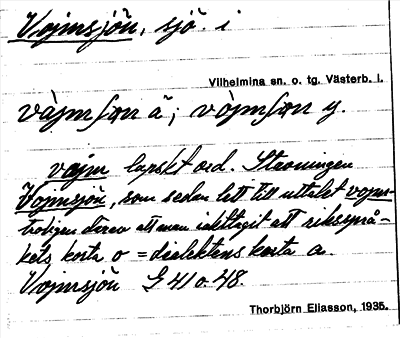 Vojmsjön, sjö. i
Vilhelmina sn. o. tg. Västerb. l.
våjmʃøn ä; vòjmʃøn y.
vojm lapskt ord. Stavningen
Vojmsjön, som sedan lett till uttalet vojm-
troligen därav att man iakttagit att rikssprå-
kets korta o = dialektens korta a.
Vojmsjön G 41 o. 48.
Thorbjörn Eliasson, 1935.